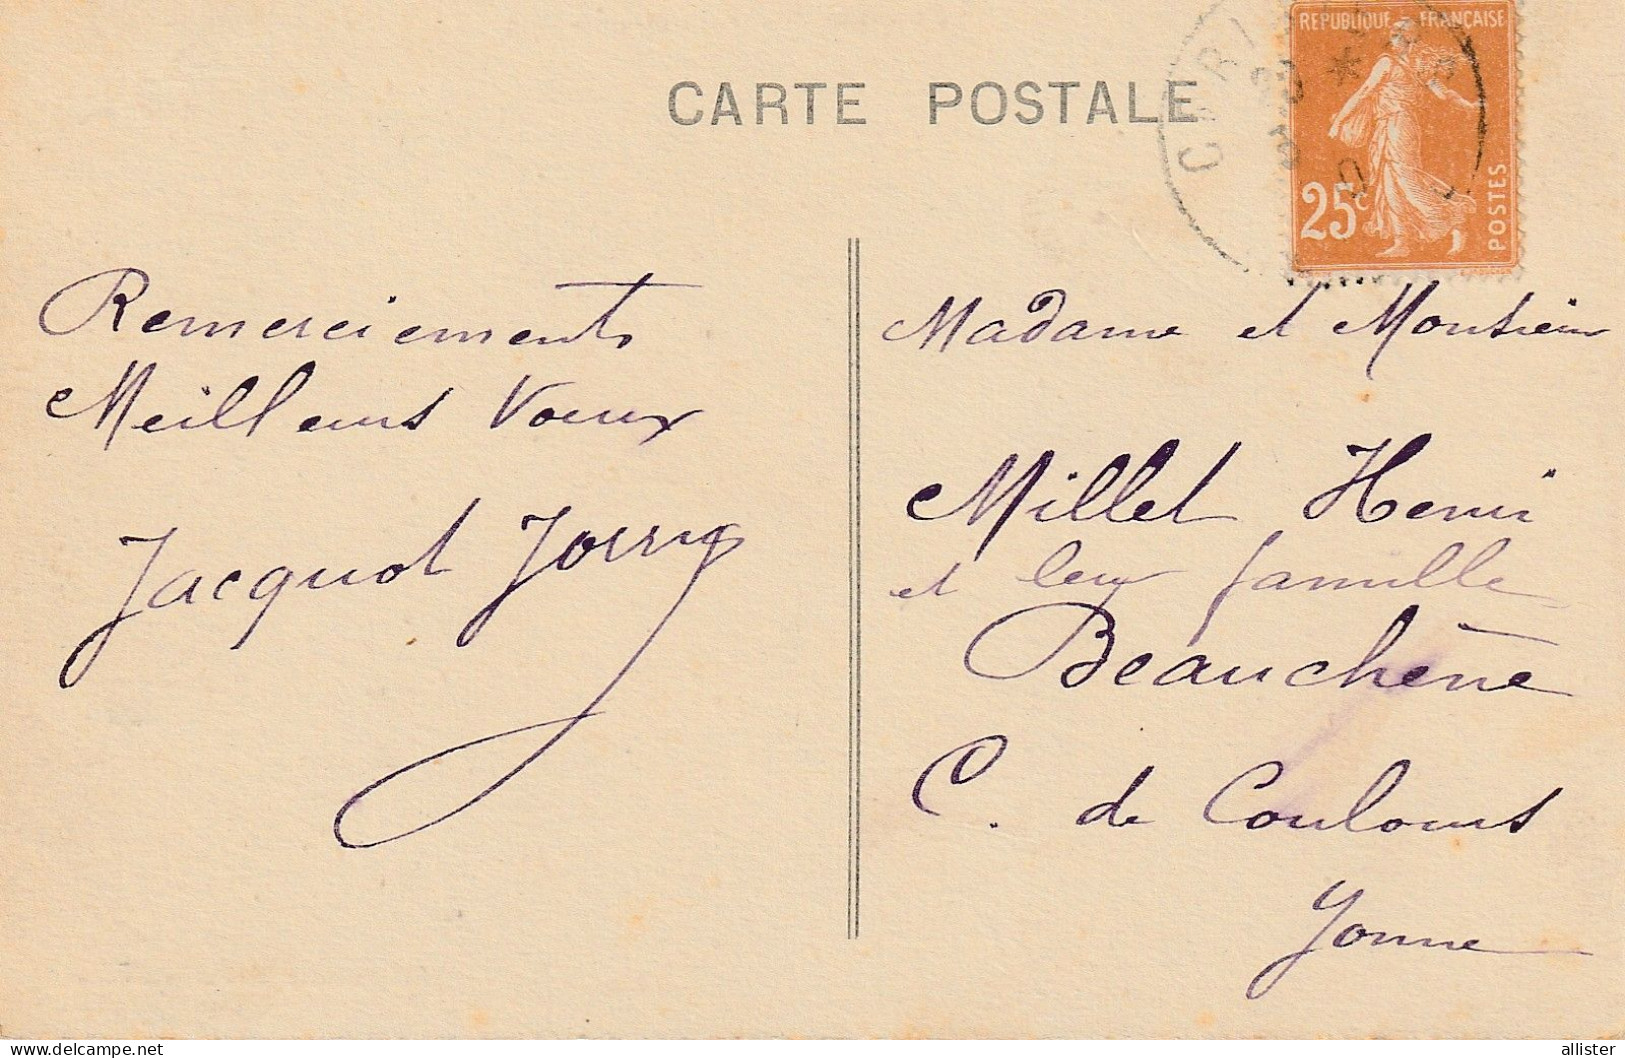 CARTE POSTALE
REPUBLIQUE FRANÇAISE
25c
POSTES
Remerciements
Meilleurs Voeux
Jacquot
Madame et Monsieur
Millet Henri
et leur famille
Beauchêne
C. de Coulours
Yonne
www.delcampe.net
allister